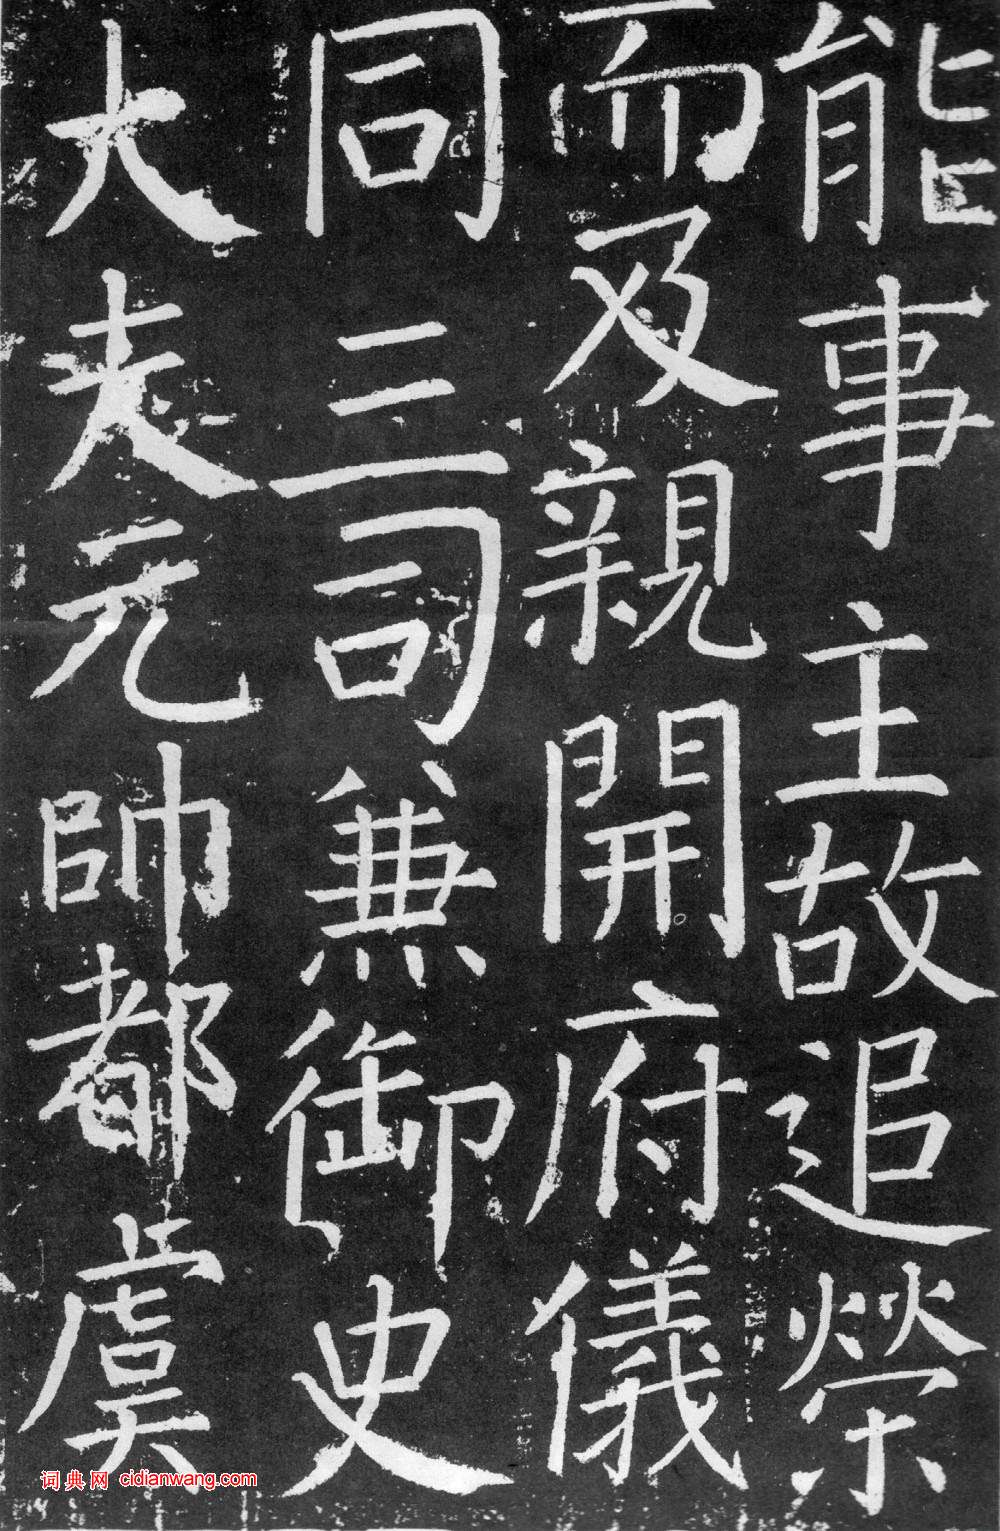 能事主故追榮
而及親開府儀
同三司兼御史
大夫元帥都虞
词典网 cidianwang.com